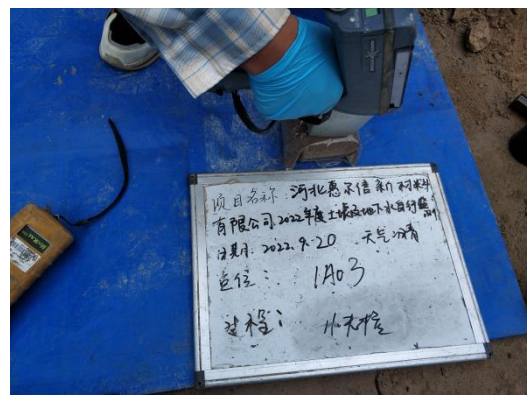 项目名称: 河北惠尔信新材料
有限公司2022年度土壤及地下水自行监测
日期: 2022.9.20 天气: 晴
点位: 1A03
过程: